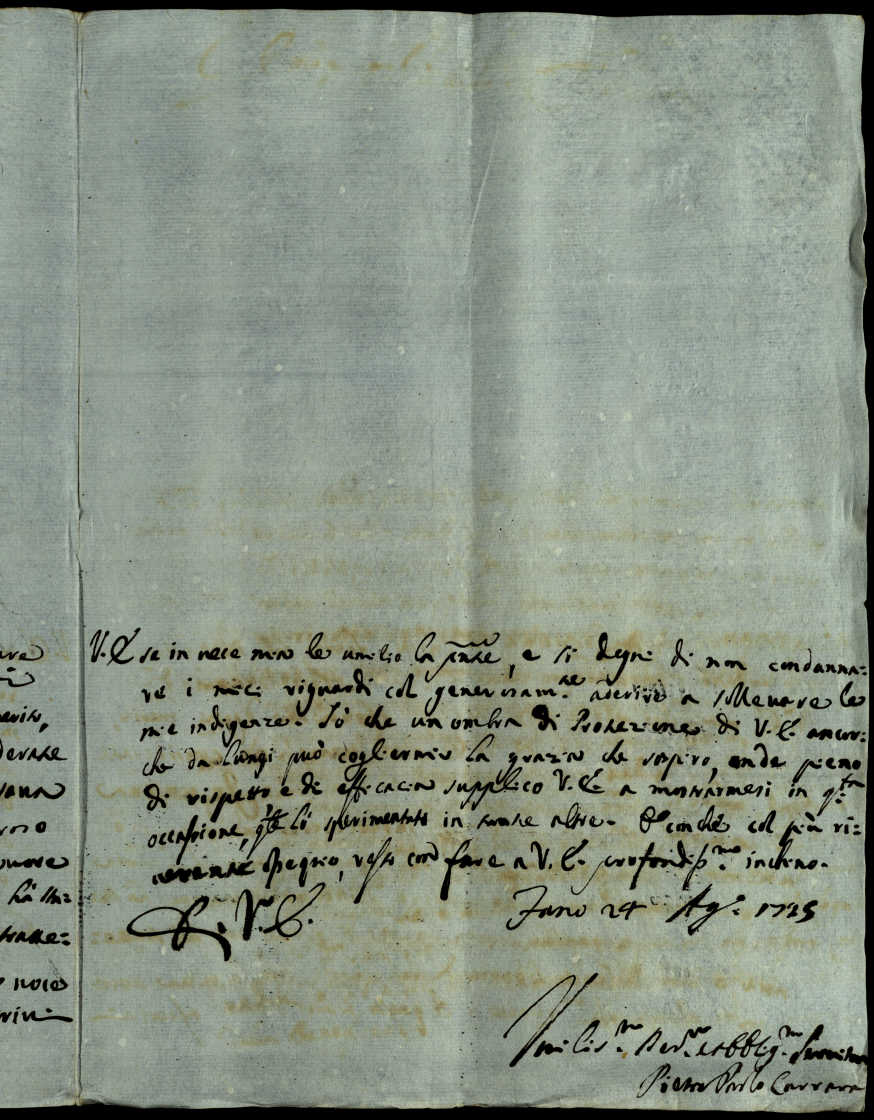 are
merito,
derare
roso
onore
hà sti=
tratte=
noce
V. E. se in vece mia le umilio la pnte, e si degni di non condanna=
re i miei riguardi col generosam.te aderire a sollevare le
mie indigenze. Sò che un ombra di Protezione di V. E. ancor=
che da lungi può cogliermi la grazia che sospiro, onde pieno
di rispetto e di efficacia supplico V. E. a mostrarmesi in q.sta
occasione, q.le l'ò sperimentato in tante altre. E conche col più ri=
verente ossequio, resto con fare a V. E. profondiss.mo inchino.
D. V. E.
Fano 24 Ag.o 1725
Umilis.mo Dev.mo ed Obblig.mo Servitore
Pietro Paolo Carrara